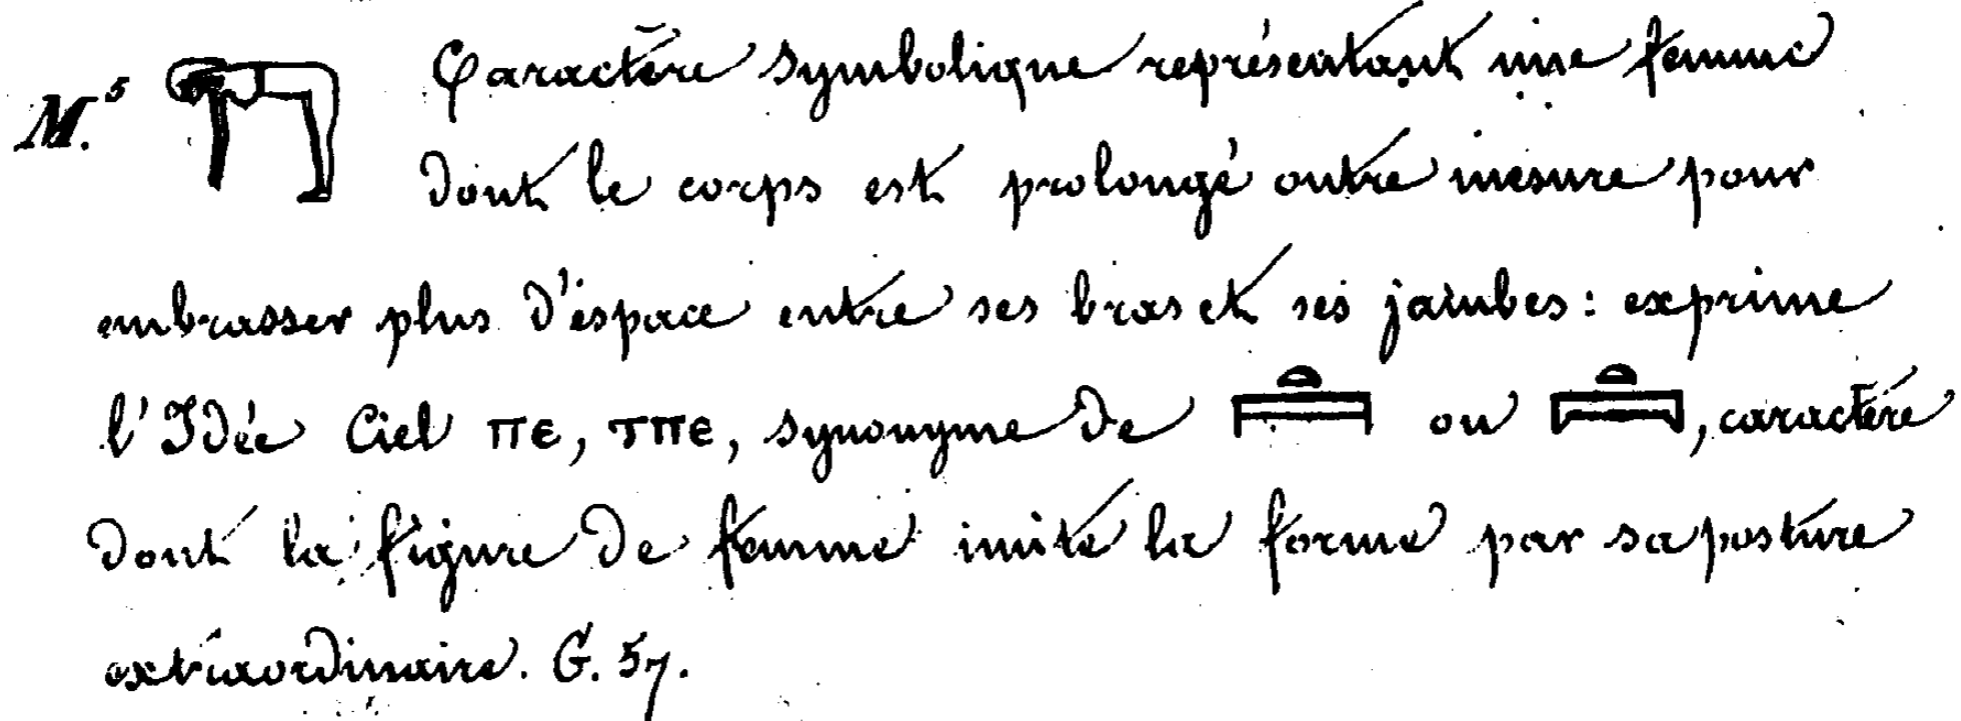 M.⁵ Caractère symbolique représentant une femme
dont le corps est prolongé outre mesure pour
embrasser plus d'éspace entre ses bras et ses jambes : exprime
l'Idée Ciel ⲡⲉ, ⲧⲡⲉ, synonyme de 𓇯 ou 𓇯, caractère
dont la figure de femme imite la forme par sa posture
extraordinaire. G. 57.